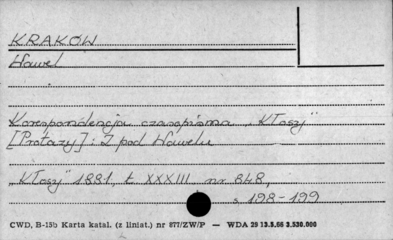 KRAKÓW
Wawel
Korespondencja czasopisma „Kłosy"
[Protazy]: Z pod Wawelu
„Kłosy" 1881, t. XXXIII nr 848,
s. 198-199
CWD, B-15b Karta katal. (z liniat.) nr 877/ZW/P — WDA 29 13.5.66 3.530.000